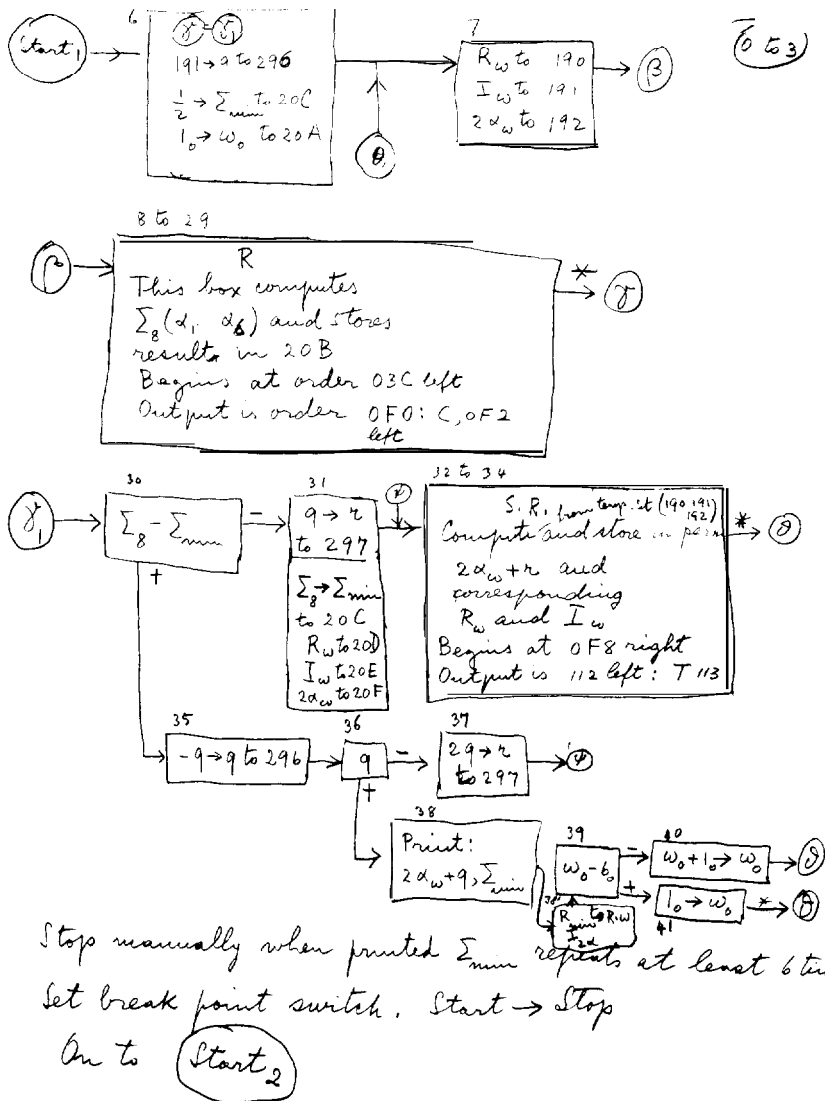 Start₁
6
γ = γ₁
|q| → q to 296
½ → Σmin to 20C
1₀ → ω₀ to 20A
θ
7
Rω to 190
Iω to 191
2αω to 192
β
(0 to 3)
8 to 29
β
R
This box computes
Σ₈(α₁ α₆) and stores
result in 20B
Begins at order 03C left
Output is order 0F0: C, 0F2
left
*
γ
γ₁
30
Σ₈ − Σmin
−
+
31
q → r
to 297
Σ₈ → Σmin
to 20C
Rω to 20D
Iω to 20E
2αω to 20F
ψ
32 to 34
S.R. from temp. st (190 191
192)
Compute and store in perm
2αω + r and
corresponding
Rω and Iω
Begins at 0F8 right
Output is 112 left: T 113
*
θ
35
−q → q to 296
36
q
−
+
37
2q → r
to 297
ψ
38
Print:
2αω + q, Σmin
38'
Rmin to R,ω
I2α
39
ω₀ − 6₀
−
+
40
ω₀ + 1₀ → ω₀
θ
1₀ → ω₀
41
*
θ
Stop manually when printed Σmin repeats at least 6 ti
Set break point switch. Start → Stop
On to Start₂